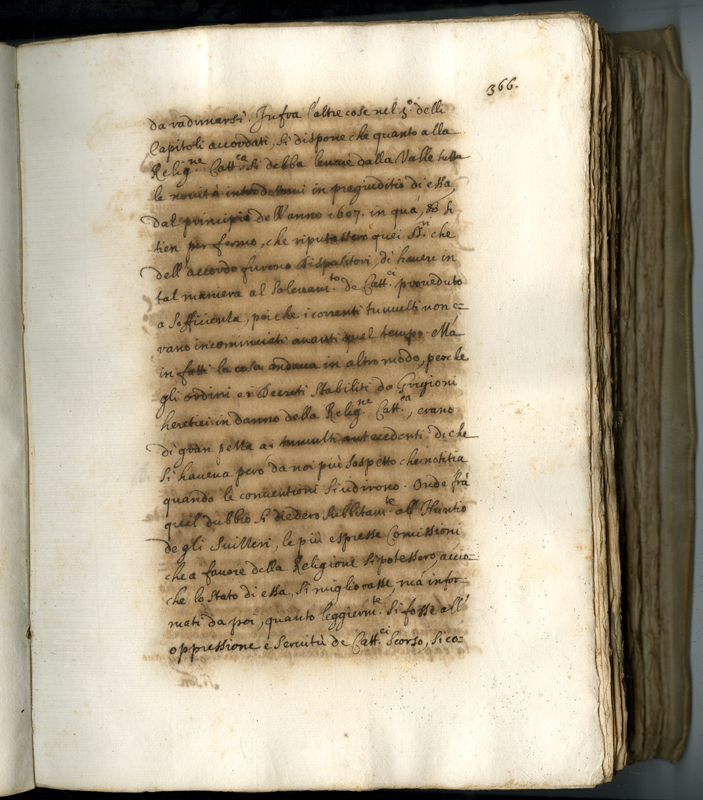 366.
da radunarsi. Infra l'altre cose nel 5.º delli
Capitoli accordati, si dispone che quanto alla
Relig.ne Catt.ca si debba levare dalla Valle tutte
le novità introdottevi in pregiuditio di essa,
dal principio dell'anno 1607. in quà, si
tien per fermo, che riputassero quei SS.ri che
dell'accordo furono dispositori, di havere in
tal maniera al Sollevam.to de Catt.ci proveduto
a sofficienza, poiche i correnti tumulti non e=
rano incominciati avanti quel tempo. Mà
in fatti la cosa andava in altro modo, perche
gli ordini, e i Decreti stabiliti da Grigioni
heretici in danno della Relig.ne Catt.ca, erano
di gran pezza a i tumulti antecedenti. di che
si haveva però da noi più sospetto che notitia
quando le conventioni si udirono. Onde frà
quel dubbio si diedero subbitam.te all'Nuntio
degli Suizzeri, le più espresse Comissioni
che a favore della Religione si potessero, accio=
che lo stato di essa, si migliorasse, mà infor=
mati da poi, quanto leggierm.te si fosse all'
oppressione e servitù de Catt.ci scorso, si co=